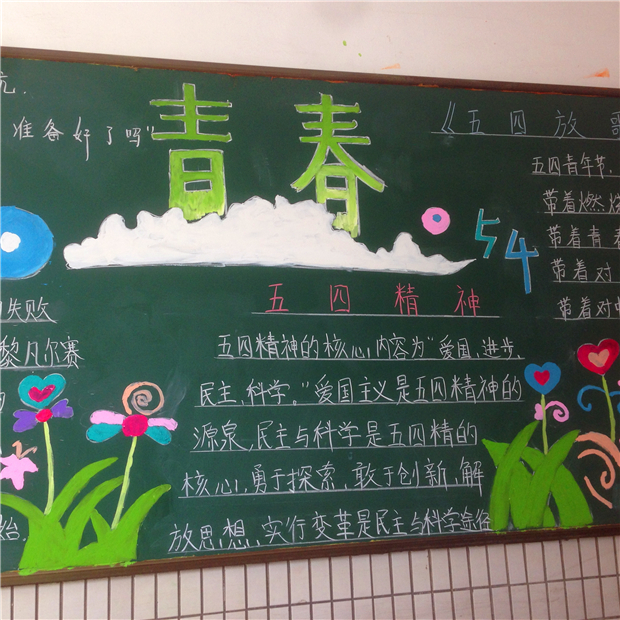 准备好了吗"
失败
黎凡尔赛
始.
青春
54
五四精神
五四精神的核心内容为"爱国、进步、
民主、科学。"爱国主义是五四精神的
源泉,民主与科学是五四精的
核心,勇于探索、敢于创新、解
放思想、实行变革是民主与科学途径
《五四放歌
五四青年节,
带着燃烧
带着青春
带着对
带着对中